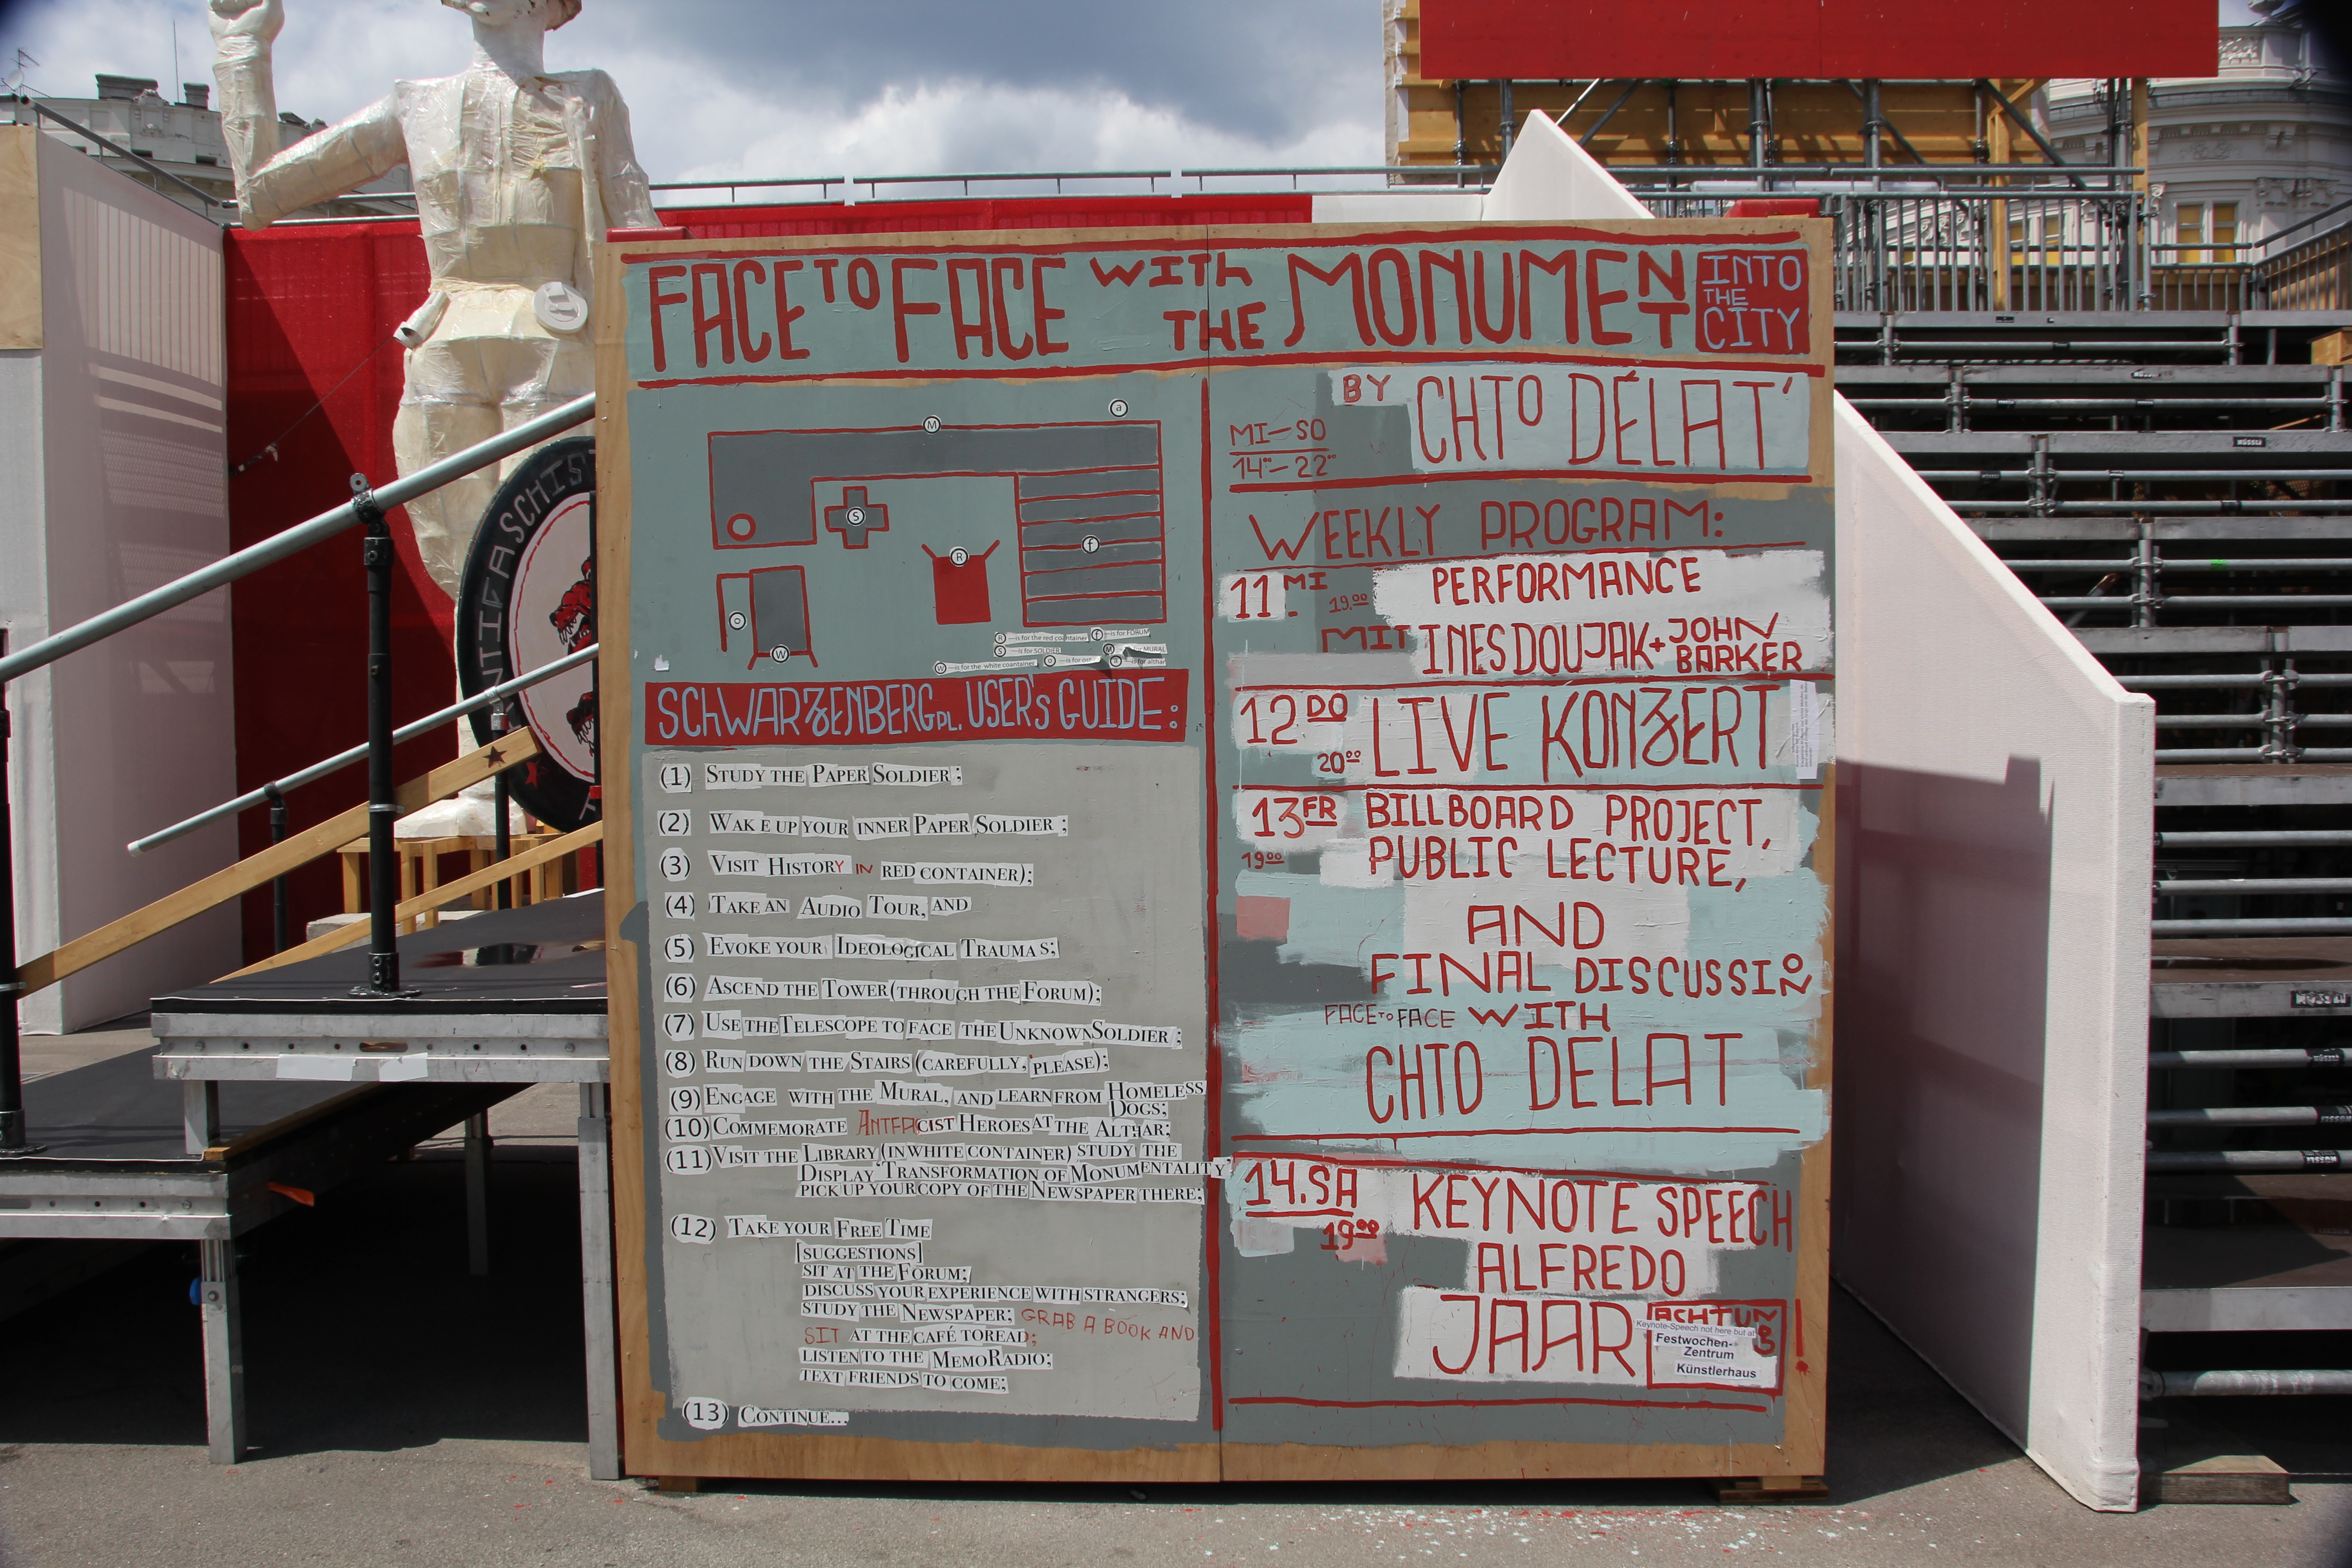 FACE TO FACE WITH THE MONUMENT
INTO THE CITY
BY CHTO DÉLAT'
MI–SO
14⁰⁰–22⁰⁰
M
a
S
R
f
o
W
R – is for the red container
f – is for FORUM
S – is for SOLDIER
M
MURAL
W – is for the white coantainer
o – is for
a
is for althar
SCHWARZENBERGPL. USER'S GUIDE:
(1) STUDY THE PAPER SOLDIER;
(2) WAKE UP YOUR INNER PAPER SOLDIER;
(3) VISIT HISTORY IN RED CONTAINER);
(4) TAKE AN AUDIO TOUR, AND
(5) EVOKE YOUR IDEOLOGICAL TRAUMAS;
(6) ASCEND THE TOWER (THROUGH THE FORUM);
(7) USE THE TELESCOPE TO FACE THE UNKNOWN SOLDIER;
(8) RUN DOWN THE STAIRS (CAREFULLY, PLEASE);
(9) ENGAGE WITH THE MURAL, AND LEARN FROM HOMELESS
DOGS;
(10) COMMEMORATE ANTIFACIST HEROES AT THE ALTHAR;
(11) VISIT THE LIBRARY (IN WHITE CONTAINER) STUDY THE
DISPLAY 'TRANSFORMATION OF MONUMENTALITY'
PICK UP YOUR COPY OF THE NEWSPAPER THERE;
(12) TAKE YOUR FREE TIME
[SUGGESTIONS]
SIT AT THE FORUM;
DISCUSS YOUR EXPERIENCE WITH STRANGERS;
STUDY THE NEWSPAPER; GRAB A BOOK AND
SIT AT THE CAFÉ TO READ;
LISTEN TO THE MEMORADIO;
TEXT FRIENDS TO COME;
(13) CONTINUE...
WEEKLY PROGRAM:
11. MI
19.⁰⁰
PERFORMANCE
MIT INES DOUJAK + JOHN BARKER
12 DO
20⁰⁰
LIVE KONZERT
13 FR
19⁰⁰
BILLBOARD PROJECT,
PUBLIC LECTURE,
AND
FINAL DISCUSSION
FACE TO FACE WITH
CHTO DELAT
14. SA
19⁰⁰
KEYNOTE SPEECH
ALFREDO
JAAR
ACHTUNG!
Keynote-Speech not here but at
Festwochen-
Zentrum
Künstlerhaus
ANTIFASCHIST